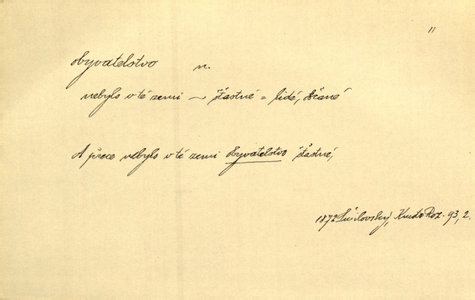 11
obyvatelstvo n.
nebylo v té zemi ~ šťastné = lidé, občané
A přece nebylo v té zemi obyvatelstvo šťastné,
1872 Šmilovský, Kmotr Roz. 93, 2.